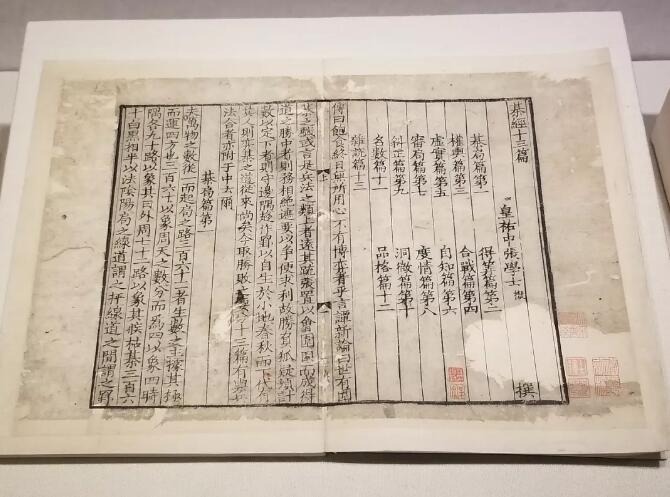 棊經十三篇
皇祐中張學士擬 撰
棊局篇第一 得筭篇第二
權輿篇第三 合戰篇第四
虛實篇第五 自知篇第六
審局篇第七 度情篇第八
斜正篇第九 洞微篇第十
名數篇十一 品格篇十二
雜說篇十三
傳曰飽食終日無所用心不有博弈者乎言譚新論曰世有圍
棊之戲或言是兵法之類上者遠其疏張置以會圍因而成得
道之勝中者則務相絕遮要以爭便求利故勝負狐疑須計
數以定下者則守邊隅趨作罫以自生於小地春秋而下代有
其人則弈棊之道從來尚矣今取勝敗 十三篇有與
法合者亦附于中云爾
棊局篇第一
夫萬物之數從一而起局之路三百六十一一者生數之主據其極
而運四方也三百六十以象周天之數分而為四以象四時
隅各九十路以象其日外周七十二路以象其候枯棊三百六
十白黑相半以法陰陽局之線道謂之枰線道之間謂之罫